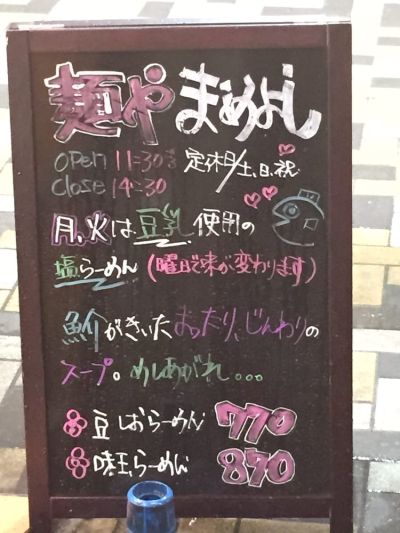 麺や まめよし
OPen 11:30
Close 14:30
定休日/土、日、祝
月、火は豆乳使用の
塩らーめん（曜日で味が変わります）
魚介がきいた まったり、じんわりの
スープ。めしあがれ...
豆しおらーめん 770
味玉らーめん 870